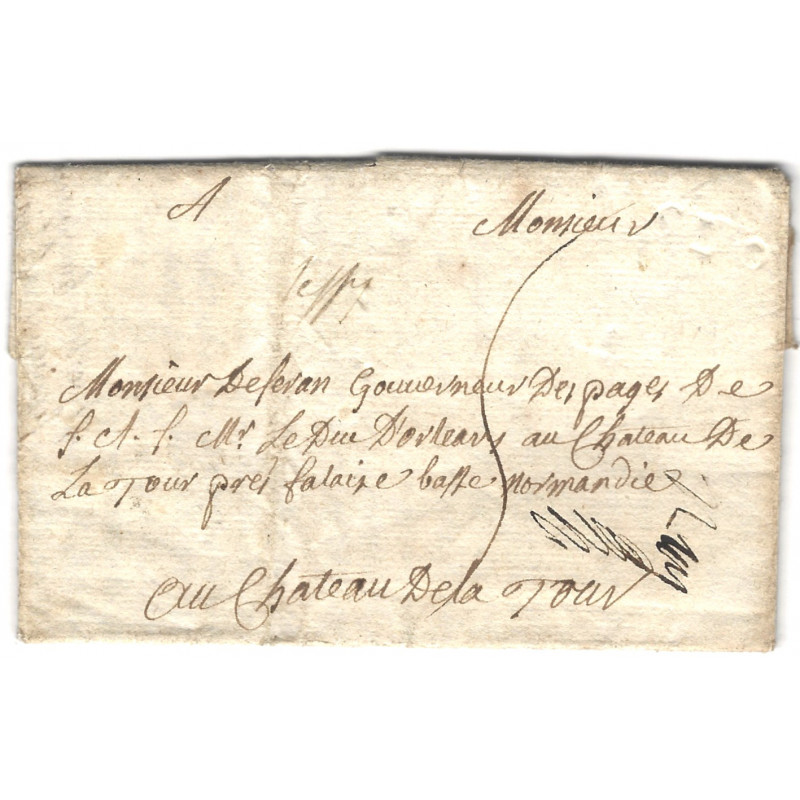 A Monsieur
Monsieur Deseran Gouverneur Des pages De
S. A. S. Mr. Le Duc D'orleans au Chateau De
La Tour pres falaise basse normandie
au Chateau De la Tour